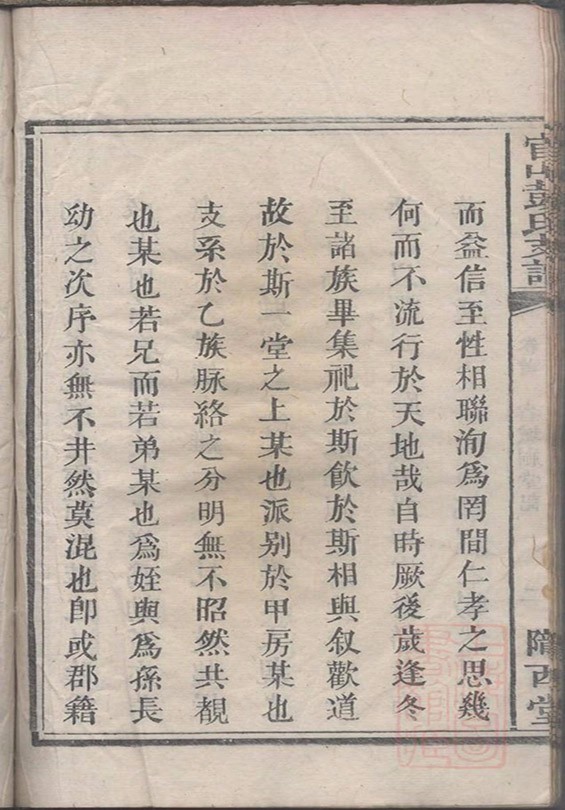 官山彭氏支譜
隴西堂
而益信至性相聯洵爲罔間仁孝之思幾
何而不流行於天地哉自時厥後歲逢冬
至諸族畢集祀於斯飲於斯相與叙歡道
故於斯一堂之上某也派别於甲房某也
支系於乙族脉絡之分明無不昭然共覩
也某也若兄而若弟某也爲姪與爲孫長
幼之次序亦無不井然莫混也卽或郡籍